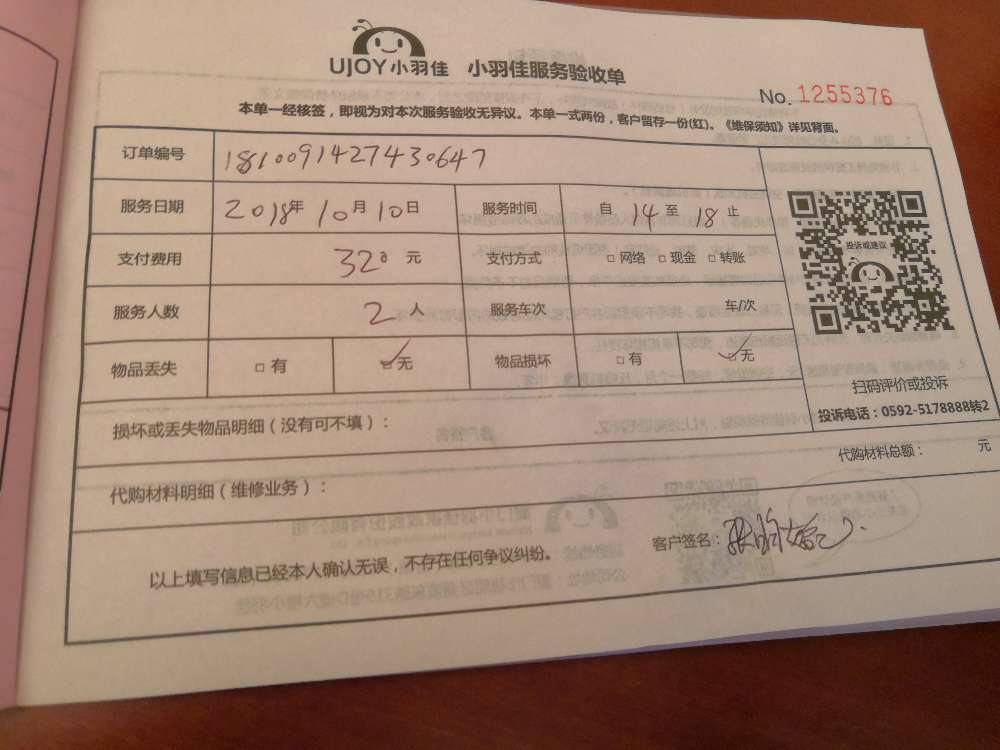 UJOY小羽佳 小羽佳服务验收单
No. 1255376
本单一经核签，即视为对本次服务验收无异议。本单一式两份，客户留存一份(红)。《维保须知》详见背面。
订单编号 1810091427430647
服务日期 2018年10月10日 服务时间 自 14 至 18 止
支付费用 320 元 支付方式 □网络 □现金 □转账
服务人数 2 人 服务车次 车/次
物品丢失 □有 ☑无 物品损坏 □有 ☑无
投诉或建议
扫码评价或投诉
投诉电话：0592-5178888转2
损坏或丢失物品明细（没有可不填）：
代购材料明细（维修业务）： 代购材料总额： 元
以上填写信息已经本人确认无误，不存在任何争议纠纷。 客户签名：